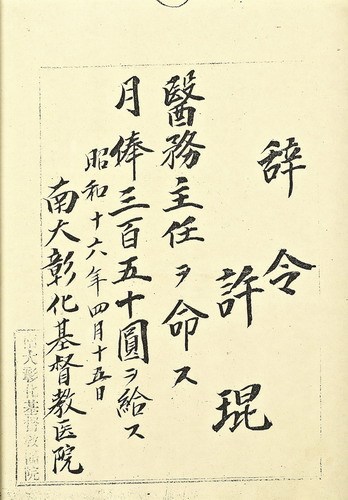 辞令
許琨
醫務主任ヲ命ス
月俸三百五十圓ヲ給ス
昭和十六年四月十五日
南大彰化基督教医院
南大彰化基督教醫院